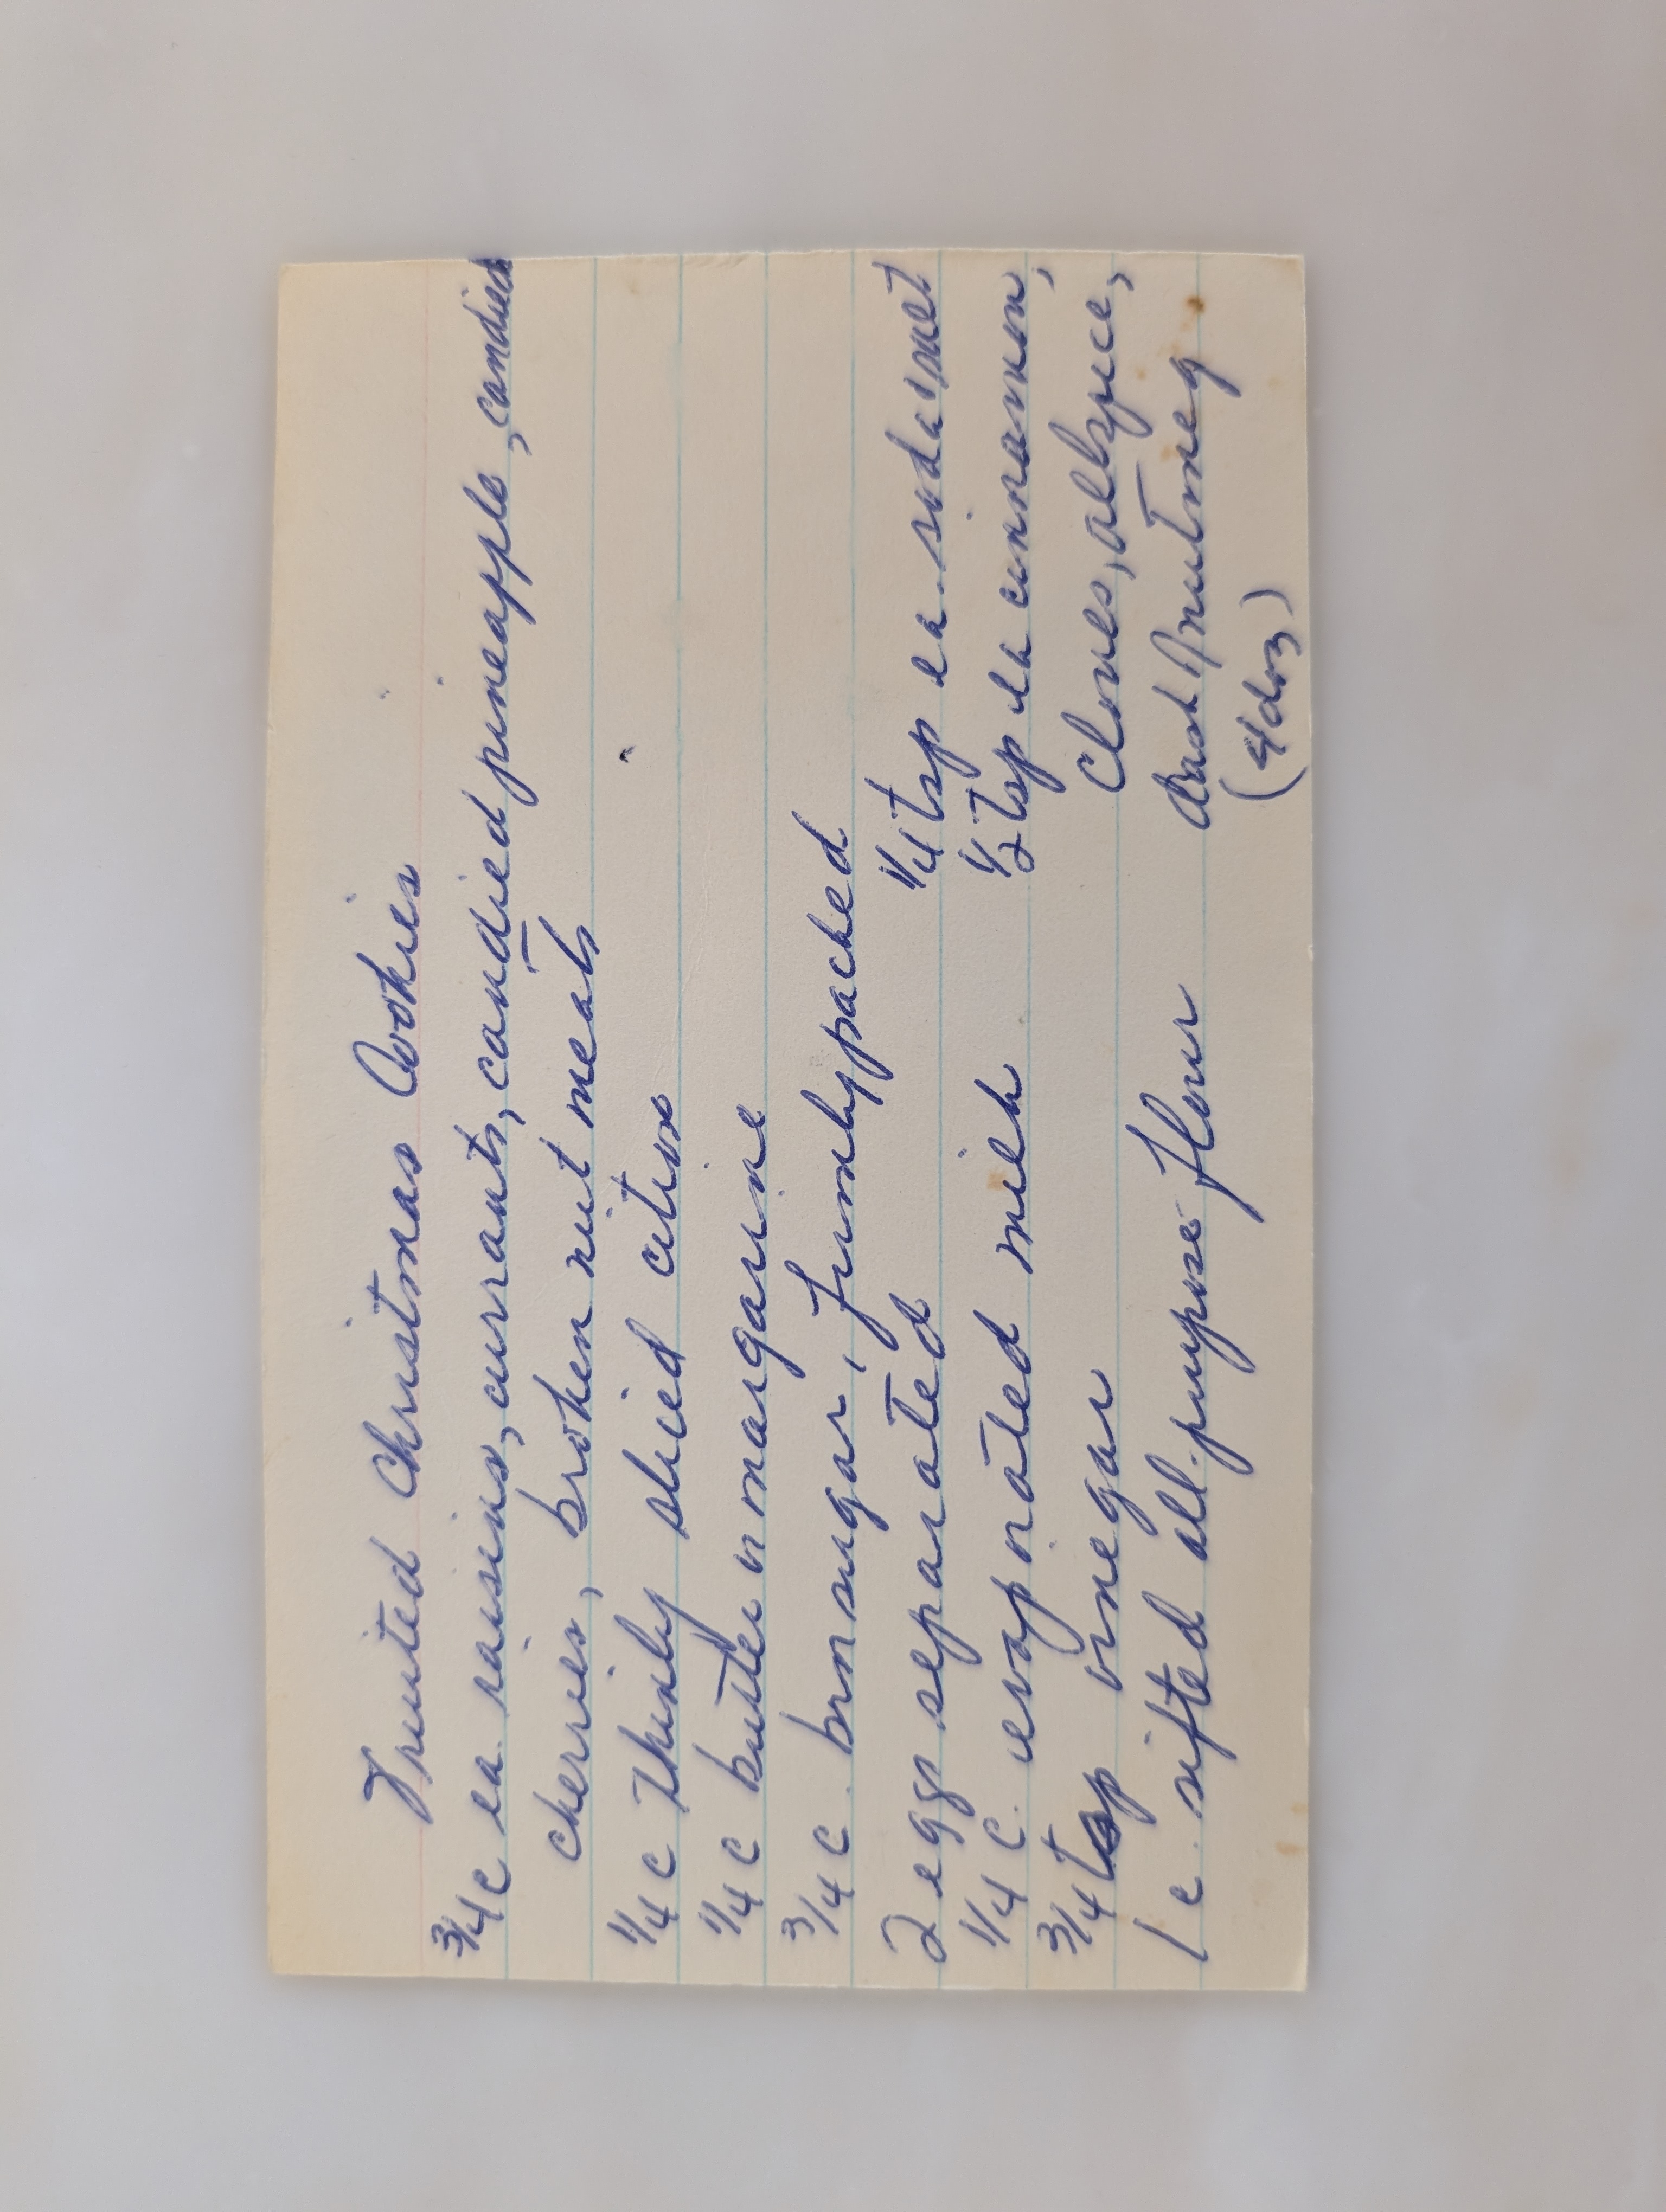 Fruited Christmas Cookies
3/4 c ea. raisins, currants, candied pineapple, candied
cherries, broken nut meats
1/4 c thinly sliced citron
1/4 c butter or margarine
3/4 c. brn sugar, firmly packed
2 eggs separated 1/4 tsp ea. soda &
1/4 c. evaporated milk 1/2 tsp ea cinnamon,
3/4 tsp vinegar cloves, allspice,
1 c. sifted all-purpose flour dash nutmeg
(4 doz)